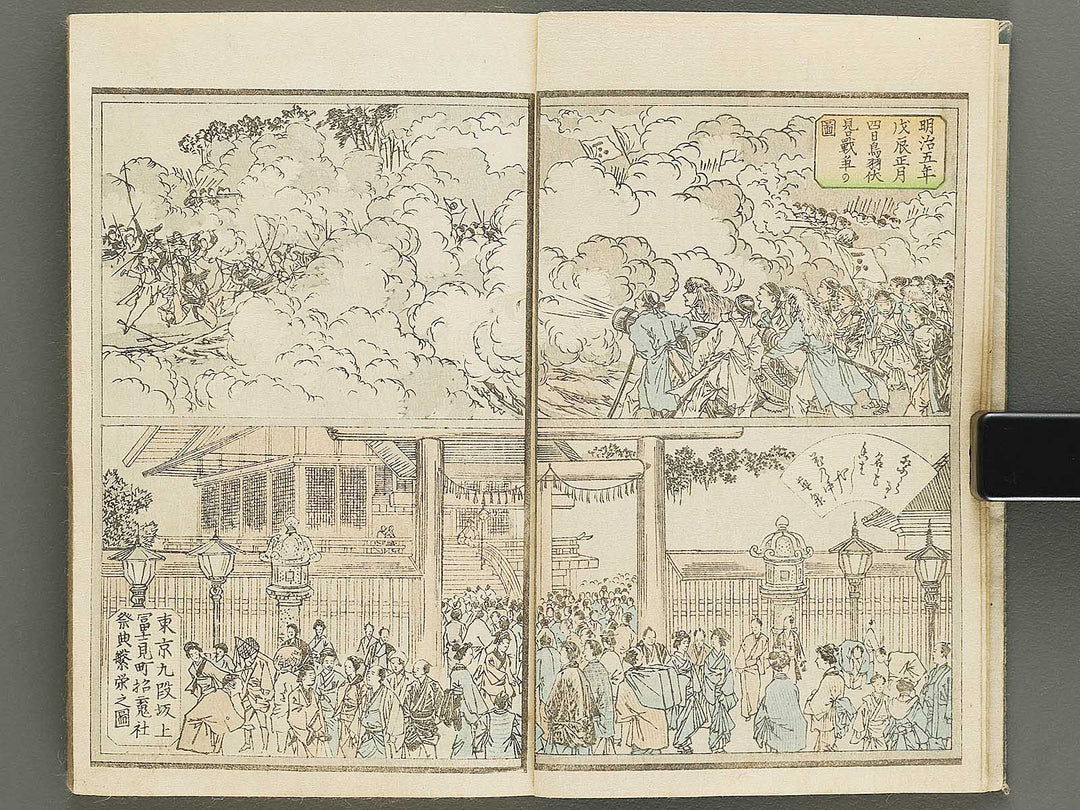 明治五年
戊辰正月
四日鳥羽伏
見戰争の
圖
東京九段坂上
冨士見町招䰟社
祭典繁栄之圖